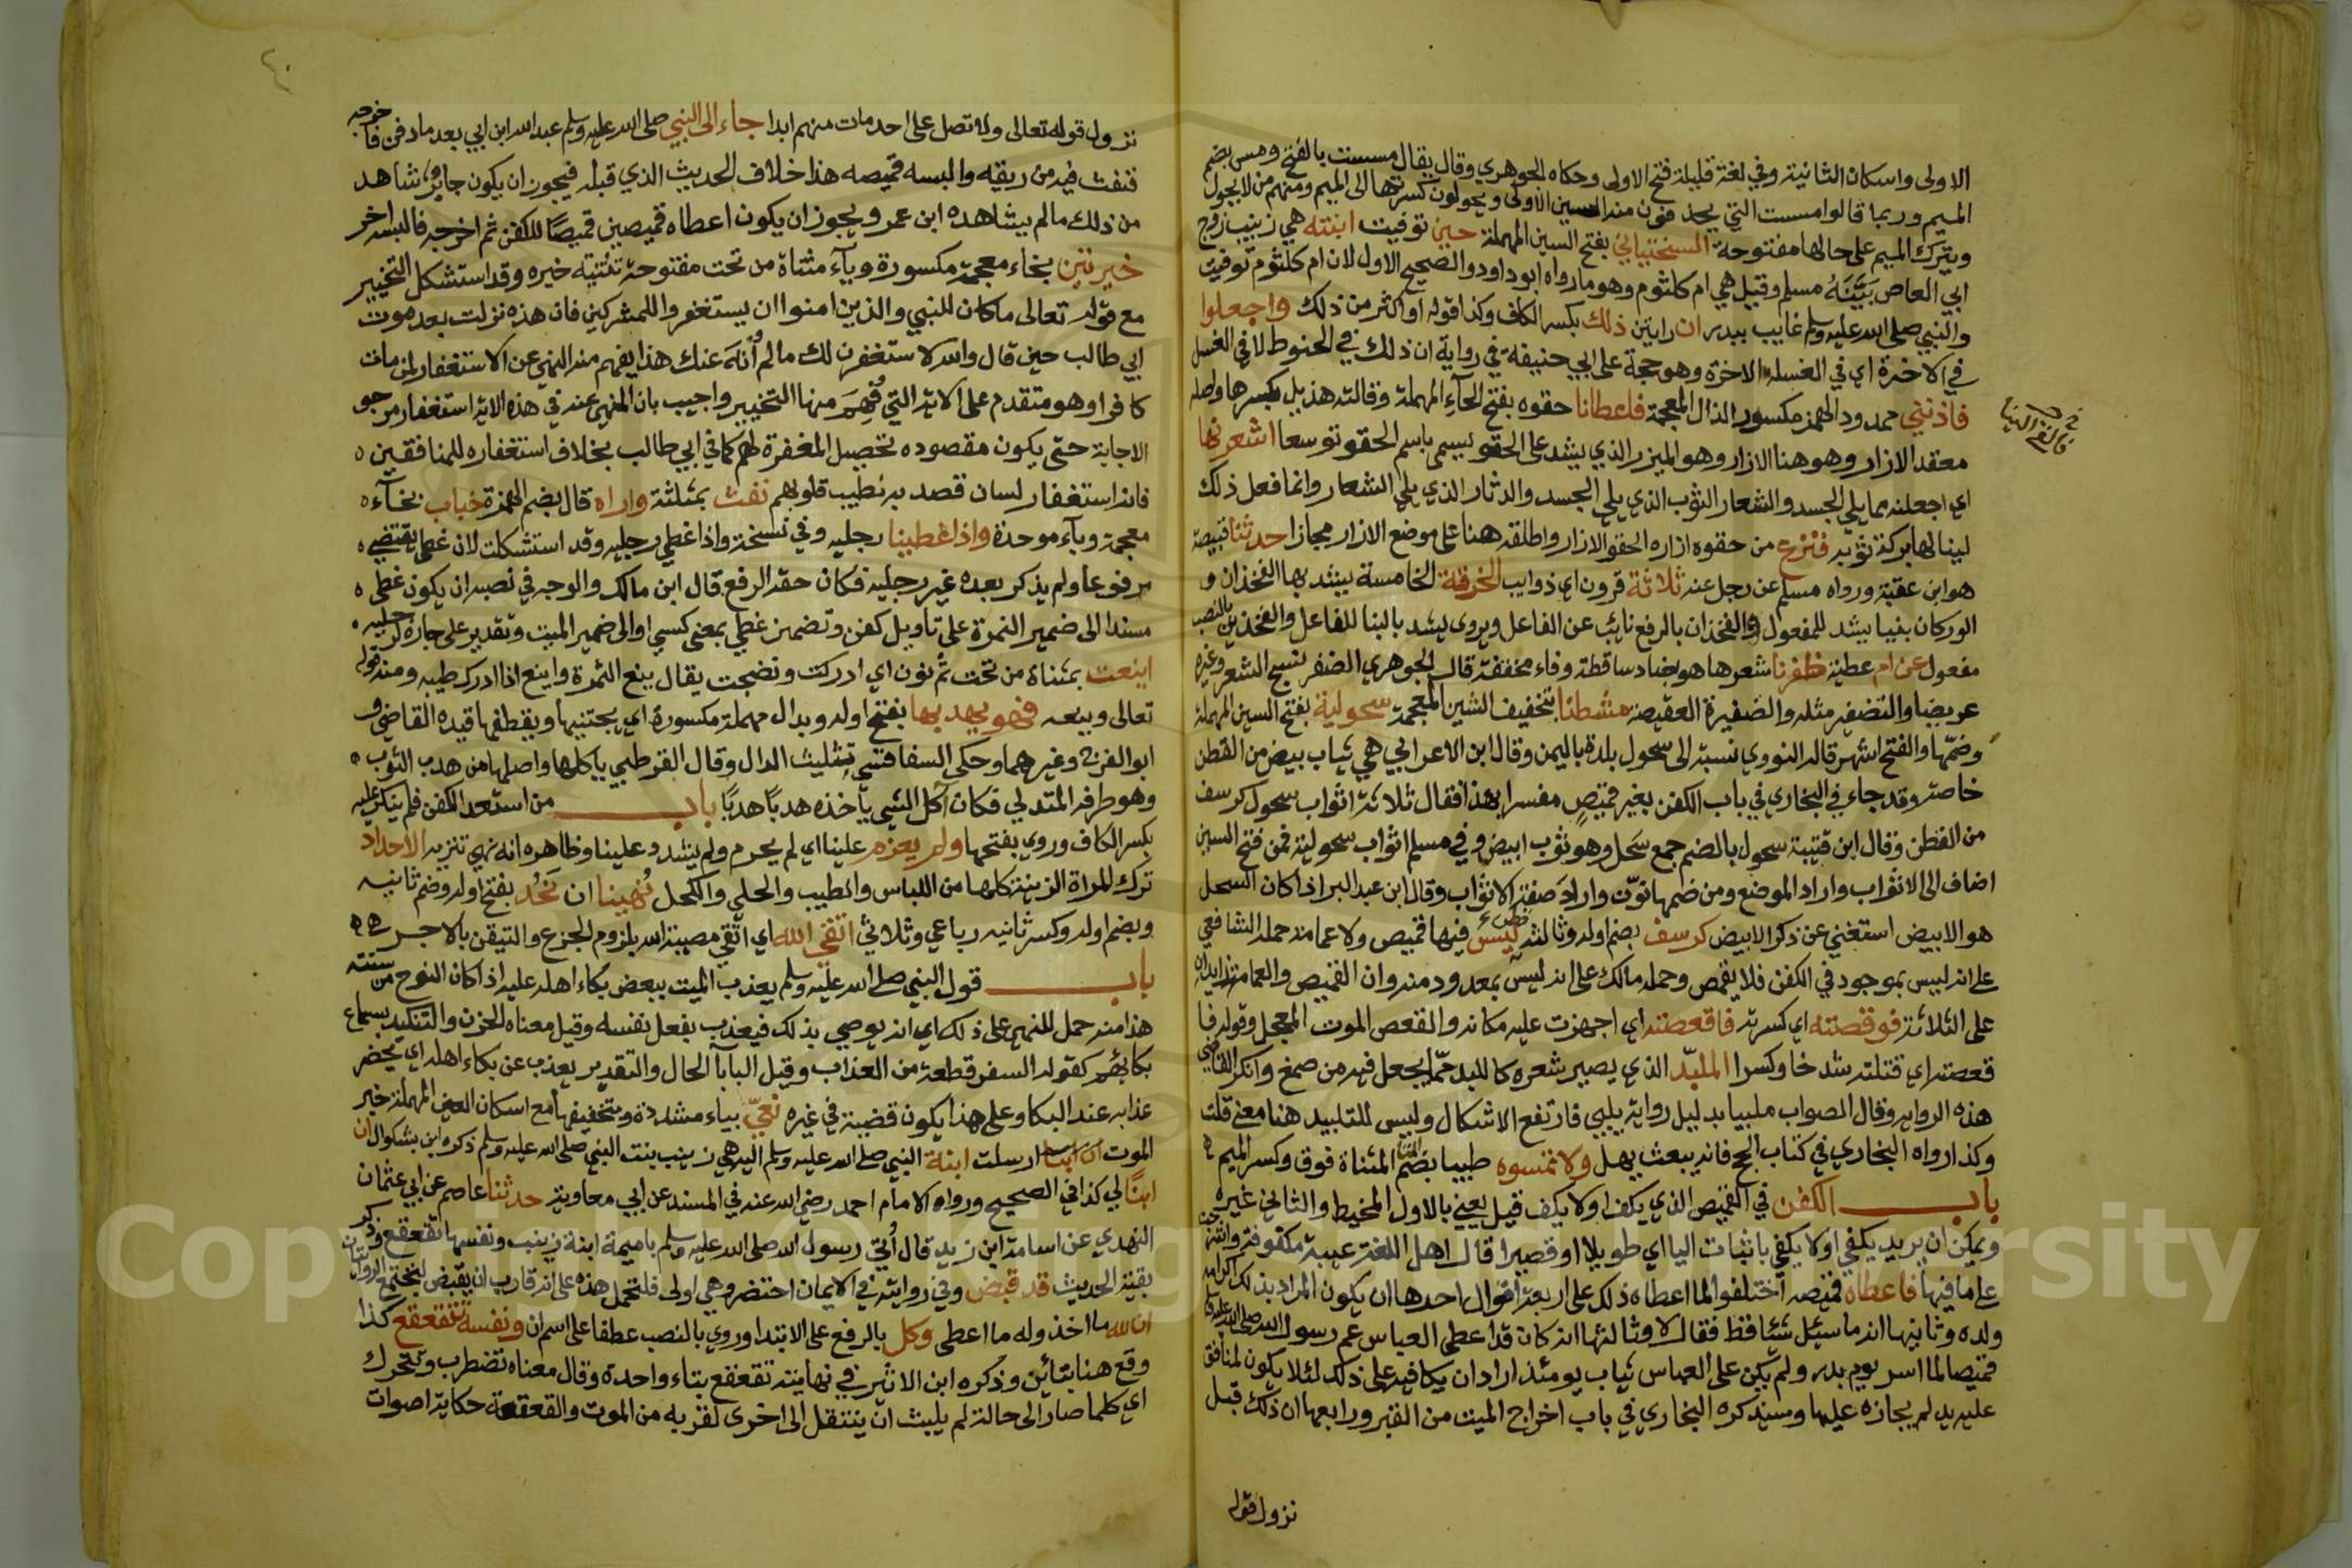 الاولى واسكان الثانية وفي لغة قليلة فتح الاولى وحكاه الجوهري وقال يقال مسست بالفتح ومس بضم
الميم وربما قالوا مست التي يحذفون منه السين الاولى ويحولون كسرتها الى الميم ومنهم من لا يحول
ويترك الميم على حالها مفتوحة السختياني بفتح السين المهملة حين توفيت ابنته هي زينب زوج
ابي العاص بينه مسلم وقيل هي ام كلثوم وهو ما رواه ابو داود والصحيح الاول لان ام كلثوم توفيت
والنبي صلى الله عليه وسلم غايب ببدر ان رايتن ذلك بكسر الكاف وكذا قوله او اكثر من ذلك واجعلوا
في الاخرة اي في الغسلة الاخرة وهو حجة على ابي حنيفة في رواية ان ذلك في الحنوط لا في الغسل
فاذنني ممدود الهمز مكسور الذال المعجمة فاعطانا حقوه بفتح الحاء المهملة وقالته هذيل بكسرها واصله
معقد الازار وهو هنا الازار وهو الميزر الذي يشد على الحقو يسمى باسم الحقو توسعا اشعرنها
اي اجعلنه مما يلي الجسد والشعار الثوب الذي يلي الجسد والدثار الذي يلي الشعار وانما فعل ذلك
لينالها بركة ثوبه فنزع من حقوه ازاره الحقو الازار واطلقه هنا على موضع الازار مجازا حدثنا قبيصة
هو ابن عقبة ورواه مسلم عن رجل عنه ثلاثة قرون اي ذوايب الخرقة الخامسة يشد بها الفخذان و
الوركان بنيا يشد للمفعول والفخذان بالرفع نائب عن الفاعل ويروى يشد بالبنا للفاعل والفخذين بالنصب
مفعول عن ام عطية ظفرنا شعرها هو بضاد ساقطة وفاء مخففة قال الجوهري الضفر نسج الشعر وغيره
عريضا والتضفير مثله والضفيرة العقيصة مشطنا بتخفيف الشين المعجمة سحولية بفتح السين المهملة
وضمها والفتح اشهر قاله النووي نسبة الى سحول بلدة باليمن وقال ابن الاعرابي هي ثياب بيض من القطن
خاصة وقد جاء في البخاري في باب الكفن بغير قميص مفسرا بهذا فقال ثلاثة اثواب سحول كرسف
من القطن وقال ابن قتيبة سحول بالضم جمع سحل وهو ثوب ابيض وفي مسلم اثواب سحولية فمن فتح السين
اضاف الى الاثواب واراد الموضع ومن ضمها نون واراد صفة الاثواب وقال ابن عبد البر اذا كان السحل
هو الابيض استغني عن ذكر الابيض كرسف بضم اوله وثالثه قطن ليس فيها قميص ولا عمامة حمله الشافعي
على انه ليس بموجود في الكفن فلا يقمص وحمله مالك على انه ليس بمعدود منه وان القميص والعمامة زايدان
على الثلاثة فوقصته اي كسرته فاقعصته اي اجهزت عليه مكانه والقعص الموت المعجل وقوله فا
قعصته اي قتلته شدخا وكسرا الملبد الذي يصير شعره كاللبد مما يجعل فيه من صمغ وانكر القاضي
هذه الرواية وقال الصواب ملبيا بدليل رواية يلبي فارتفع الاشكال وليس للتلبيد هنا معنى قلت
وكذا رواه البخاري في كتاب الحج فانه يبعث يهل ولا تمسوه طيبا بضم التاء المثناة فوق وكسر الميم
باب الكفن في القميص الذي يكف او لا يكف قيل يعني بالاول المخيط والثاني غيره
ويمكن ان يريد يكفي او لا يكفي باثبات اليا اي طويلا او قصيرا قال اهل اللغة عيبة مكفوفة
على ما فيها فاعطاه قميصه اختلفوا لما اعطاه ذلك على اربعة اقوال احدها ان يكون المراد بذلك اكرامه
ولده وثانيها انه ما سئل شيئا قط فقال لا وثالثها انه كان قد اعطى العباس عم رسول الله صلى الله عليه
قميصا لما اسر يوم بدر ولم يكن على العباس ثياب يومئذ اراد ان يكافيه على ذلك لئلا يكون لمنافق
عليه يد لم يجازه عليها وسيذكره البخاري في باب اخراج الميت من القبر ورابعها ان ذلك قبل
نزول قوله
٤٠
نزول قوله تعالى ولا تصل على احد مات منهم ابدا جاء الى النبي صلى الله عليه وسلم عبد الله ابن ابي بعد ما دفن فاخرجه
فنفث فيه من ريقه والبسه قميصه هذا خلاف الحديث الذي قبله فيجوز ان يكون جابر شاهد
من ذلك ما لم يشاهده ابن عمر ويجوز ان يكون اعطاه قميصين قميصا للكفن ثم اخرجه فالبسه اخر
خيرتين بخاء معجمة مكسورة وياء مثناة من تحت مفتوحة تثنية خيرة وقد استشكل التخيير
مع قوله تعالى ما كان للنبي والذين امنوا ان يستغفروا للمشركين فان هذه نزلت بعد موت
ابي طالب حين قال والله لاستغفرن لك ما لم أنه عنك هذا يفهم منه النهي عن الاستغفار لمن مات
كافرا وهو متقدم على الاية التي فهم منها التخيير واجيب بان المنهي عنه في هذه الاية استغفار مرجو
الاجابة حتى يكون مقصوده تحصيل المغفرة لهم كما في ابي طالب بخلاف استغفاره للمنافقين
فانه استغفار لسان قصد به تطييب قلوبهم نفث بمثلثة واراه قال بضم الهمزة خباب بخاء
معجمة وباء موحدة واذا غطينا رجليه وفي نسخة واذا غطي رجليه وقد استشكلت لان غطي يقتضي
مرفوعا ولم يذكر بعده غير رجليه فكان حقه الرفع قال ابن مالك والوجه في نصبه ان يكون غطي
مسندا الى ضمير النمرة على تاويل كفن وتضمن غطي بمعنى كسي او الى ضمير الميت وتقدير على جاره لرجليه
اينعت بمثناة من تحت ثم نون اي ادركت ونضجت يقال ينع الثمرة واينع اذا ادرك طيبه ومنه قوله
تعالى وينعه فهو يهدبها بفتح اوله وبدال مهملة مكسورة اي يجتنيها ويقطفها قيده القاضي و
ابو الفرج وغيرهما وحكى السفاقسي تثليث الدال وقال القرطبي ياكلها واصلها من هدب الثوب
وهو طرفه المتدلي فكان اكل الشيء ياخذه هدبا هدبا باب من استعد الكفن فلم ينكر عليه
بكسر الكاف وروي بفتحها ولم يعزم علينا اي لم يحرم ولم يشدد علينا وظاهره انه نهي تنزيه الاحداد
ترك المراة الزينة كلها من اللباس والطيب والحلي والكحل نهينا ان نحد بفتح اوله وضم ثانيه
وبضم اوله وكسر ثانيه رباعي وثلاثي اتقي الله اي اتقي مصيبة الله بلزوم الجزع والتيقن بالاجر
باب قول النبي صلى الله عليه وسلم يعذب الميت ببعض بكاء اهله عليه اذا كان النوح من سنته
هذا منه حمل للنهي على ذلك اي انه يوصي بذلك فيعذب بفعل نفسه وقيل معناه الحزن والتنكيد بسماع
بكائهم كقوله السفر قطعة من العذاب وقيل البا باا الحال والتقدير يعذب عن بكاء اهله اي يحضر
عذابه عند البكا وعلى هذا يكون قضية في غيره نعي بياء مشددة وبتخفيفها مع اسكان العين المهملة خبر
الموت ارسلت ابنة النبي صلى الله عليه وسلم اليه هي زينب بنت النبي صلى الله عليه وسلم ذكره ابن بشكوال ان
ابنا لي كذا في الصحيح ورواه الامام احمد رضي الله عنه في المسند عن ابي معاوية حدثنا عاصم عن ابي عثمان
النهدي عن اسامة ابن زيد قال أتي رسول الله صلى الله عليه وسلم باميمة ابنة زينب ونفسها تقعقع وذكر
بقية الحديث قد قبض وفي روايته في الايمان احتضر وهي اولى فلتحمل هذه على انه قارب ان يقبض لتجتمع الروايتان
ان لله ما اخذ وله ما اعطى وكل بالرفع على الابتدا وروي بالنصب عطفا على اسم ان ونفسه تتقعقع كذا
وقع هنا بتائين وذكره ابن الاثير في نهايته تقعقع بتاء واحدة وقال معناه تضطرب وتتحرك
اي كلما صار الى حالة لم يلبث ان ينتقل الى اخرى لقربه من الموت والقعقعة حكاية اصوات